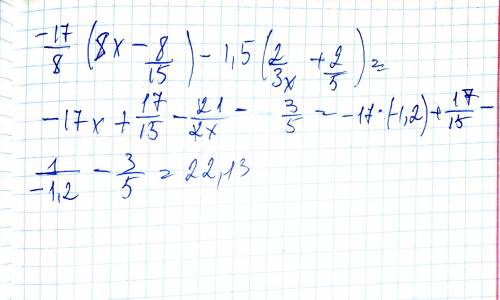 -17/8 (8x - 8/15) - 1,5 (2/3x + 2/5) =
-17x + 17/15 - 21/2x - 3/5 = -17·(-1,2) + 17/15 -
1/-1,2 - 3/5 = 22,13